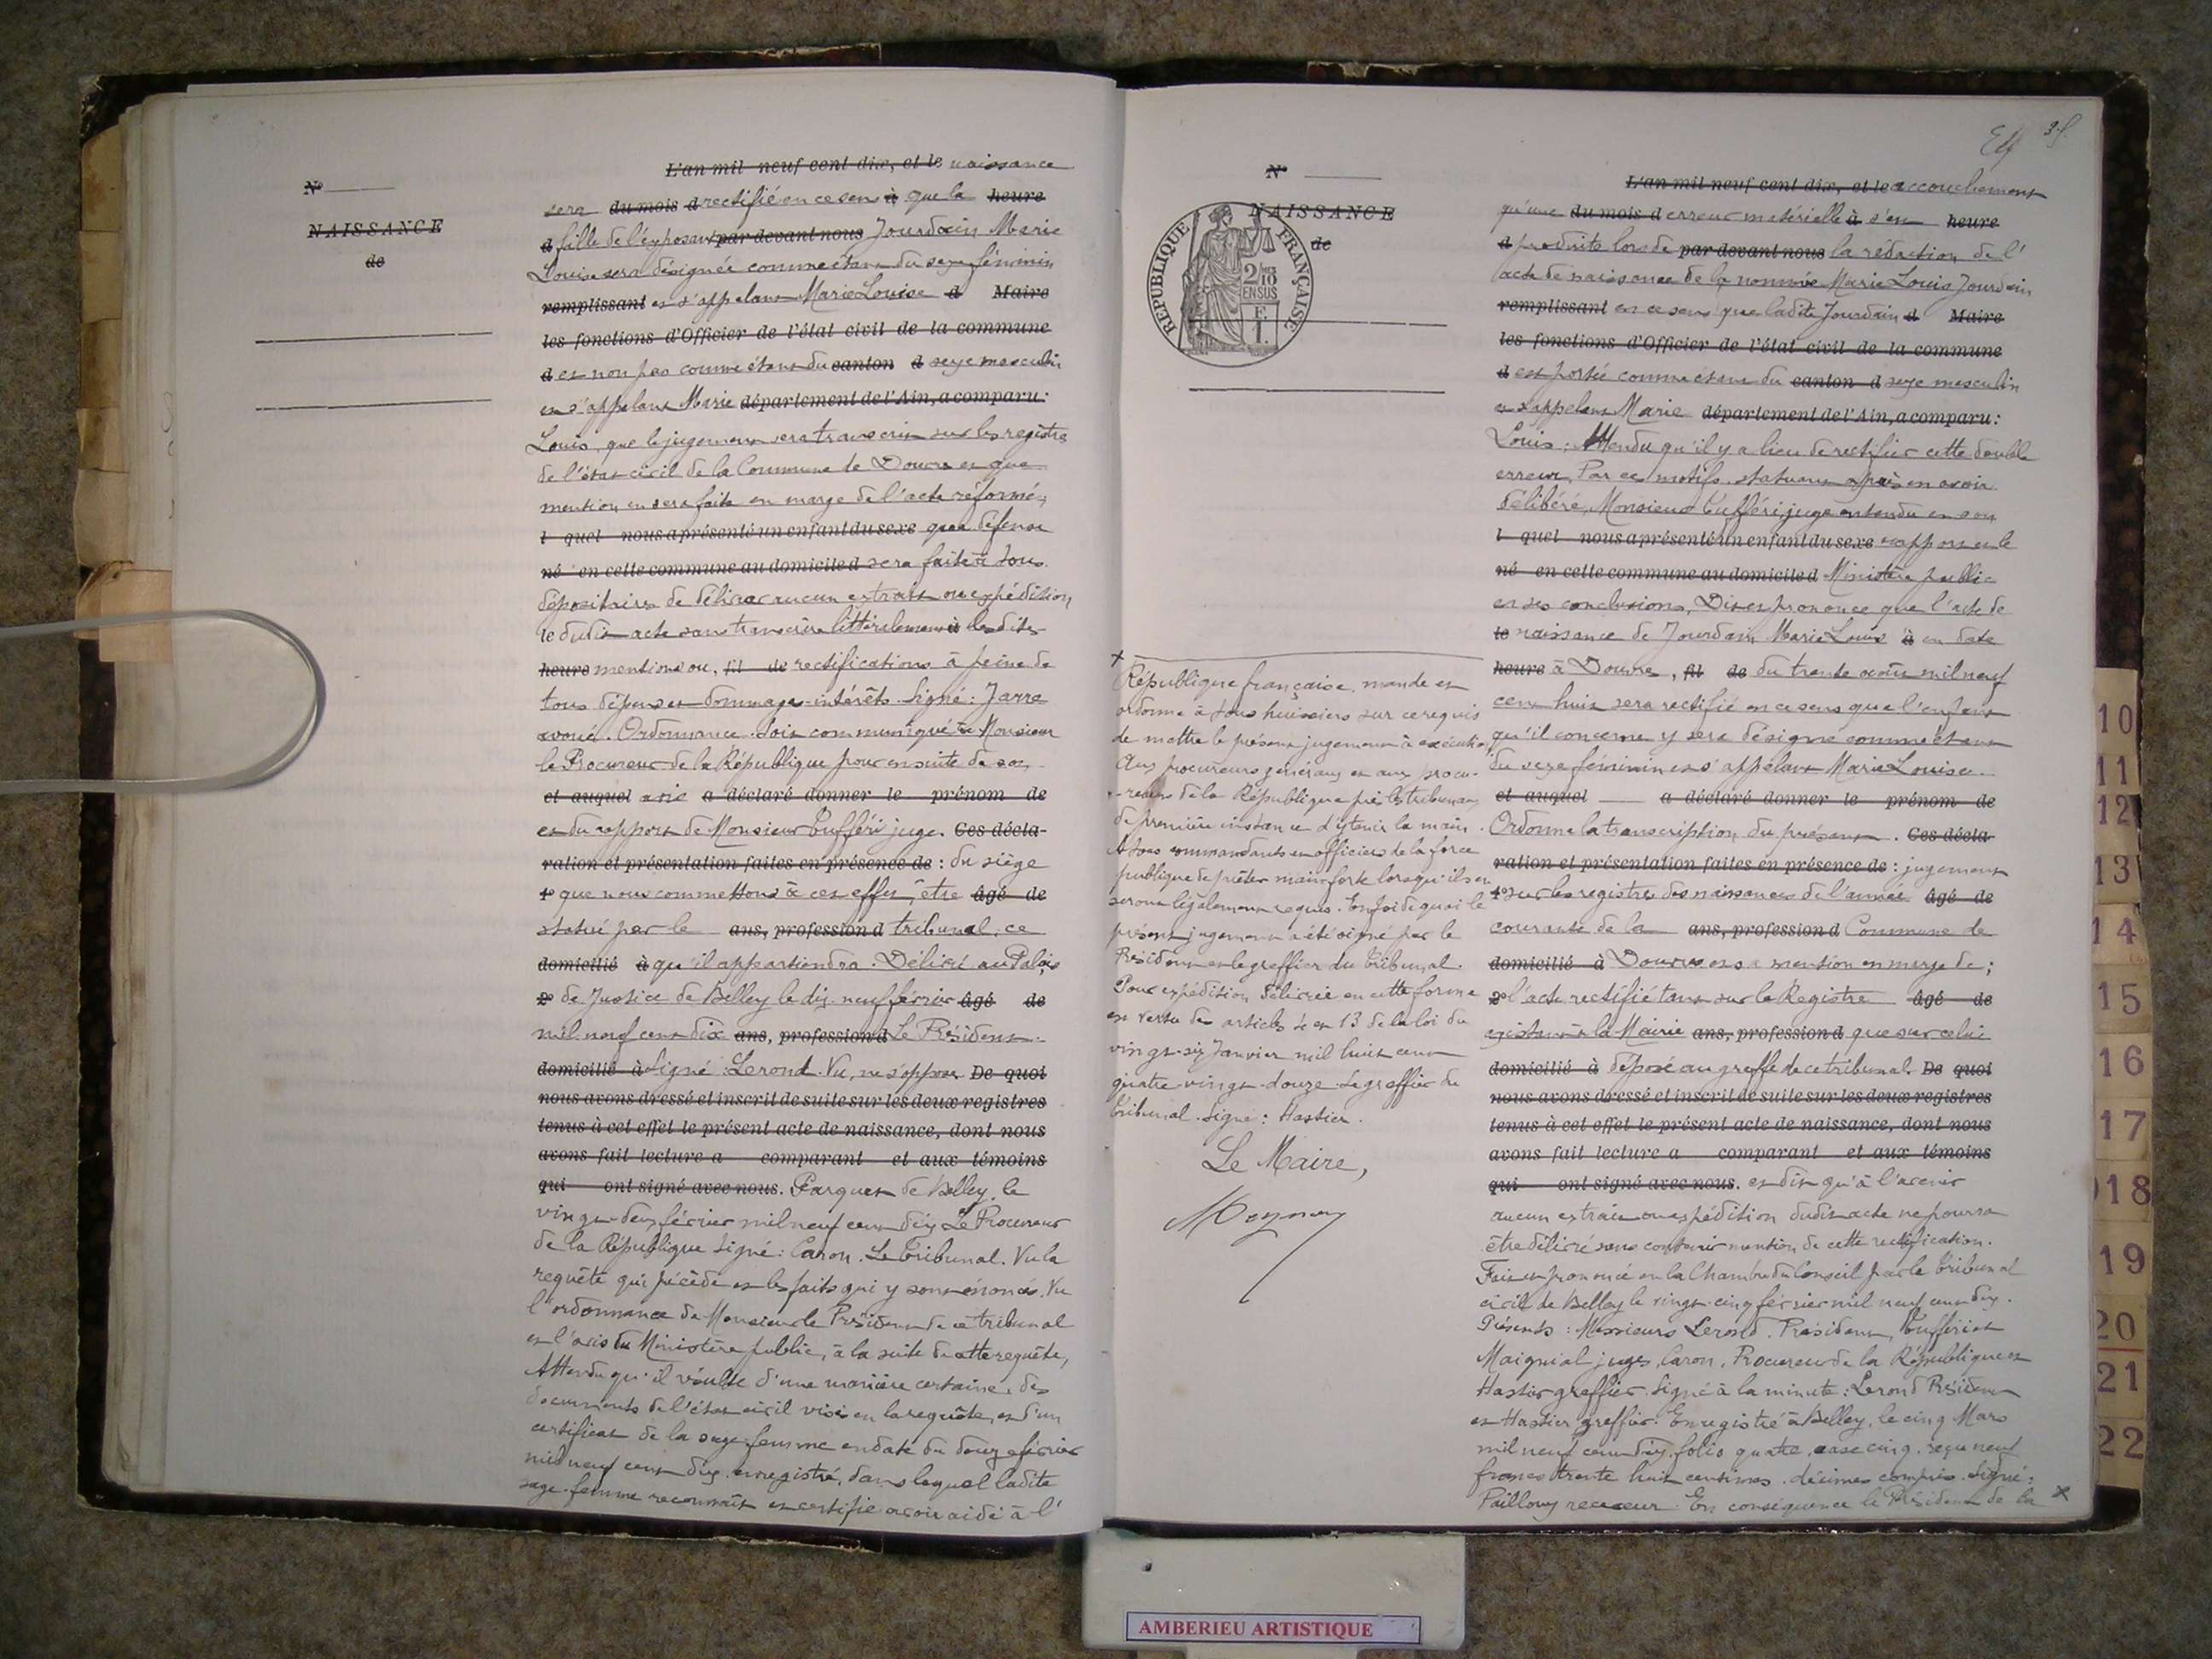 N°
NAISSANCE
de
L'an mil neuf cent dix, et le naissance
sera du mois d rectifié en ce sens à que la heure
d fille de l'exposant par devant nous Jourdain Marie
Louise sera désignée comme étant du sexe féminin
remplissant et s'appelant Marie Louise d Maire
les fonctions d'Officier de l'état civil de la commune
d et non pas comme étant du canton d sexe masculin
et s'appelant Marie département de l'Ain, a comparu:
Louis, que le jugement sera transcrit sur les registres
de l'état civil de la Commune de Douvres et que
mention en sera faite en marge de l'acte réformé,
l quel nous a présenté un enfant du sexe que défense
né en cette commune au domicile d sera faite à tous
dépositaires de délivrer aucun extrait ou expédition
le dudit acte sans transcrire littéralement à lesdites
heure mentions ou, fil de rectifications à peine de
tous dépens et dommages-intérêts. Signé: Jarre
avoué. Ordonnance. Soit communiqué à Monsieur
le Procureur de la République pour ensuite de son
et auquel avis a déclaré donner le prénom de
et du rapport de Monsieur Tufféri juge. Ces décla-
ration et présentation faites en présence de: du siège
1° que nous commettons à cet effet, être âgé de
statué par le ans, profession d tribunal, ce
domicilié à qu'il appartiendra. Délivré au Palais
2° de Justice de Belley le dix-neuf février âgé de
mil neuf cent dix ans, profession d Le Président.
domicilié à Signé: Lerond. Vu, ne s'oppose De quoi
nous avons dressé et inscrit de suite sur les deux registres
tenus à cet effet le présent acte de naissance, dont nous
avons fait lecture a comparant et aux témoins
qui ont signé avec nous. Parquet de Belley, le
vingt-deux février mil neuf cent dix Le Procureur
de la République Signé: Caron. Le Tribunal. Vu la
requête qui précède et les faits qui y sont énoncés. Vu
l'ordonnance de Monsieur le Président de ce tribunal
et l'avis du Ministère public, à la suite de cette requête,
Attendu qu'il résulte d'une manière certaine, des
documents de l'état civil visés en la requête, et d'un
certificat de la sage-femme en date du douze février
mil neuf cent dix, enregistré, dans lequel ladite
sage-femme reconnaît et certifie avoir aidé à l'
35
N°
NAISSANCE
de
RÉPUBLIQUE FRANÇAISE
2/10 EN SUS
F.
1.
L'an mil neuf cent dix, et le accouchement
qu'une du mois d erreur matérielle à s'en heure
d produite lors de par devant nous la rédaction de l'
acte de naissance de la nommée Marie Louis Jourdain
remplissant en ce sens que ladite Jourdain d Maire
les fonctions d'Officier de l'état civil de la commune
d est portée comme étant du canton d sexe masculin
et s'appelant Marie département de l'Ain, a comparu:
Louis; Attendu qu'il y a lieu de rectifier cette double
erreur, Par ces motifs, statuant après en avoir
délibéré, Monsieur Tufféri, juge entendu en son
l quel nous a présenté un enfant du sexe rapport et le
né en cette commune au domicile d Ministère public
en ses conclusions, Dit et prononce que l'acte de
le naissance de Jourdain Marie Louis à en date
heure à Douvres, fil de du trente août mil neuf
cent huit sera rectifié en ce sens que l'enfant
qu'il concerne y sera désigné comme étant
du sexe féminin et s'appelant Marie Louise.
et auquel a déclaré donner le prénom de
Ordonne la transcription du présent. Ces décla-
ration et présentation faites en présence de: jugement
1° sur les registres des naissances de l'année âgé de
courante de la ans, profession d Commune de
domicilié à Douvres et sa mention en marge de;
2° l'acte rectifié tant sur le Registre âgé de
existant à la Mairie ans, profession d que sur celui
domicilié à déposé au greffe de ce tribunal. De quoi
nous avons dressé et inscrit de suite sur les deux registres
tenus à cet effet le présent acte de naissance, dont nous
avons fait lecture a comparant et aux témoins
qui ont signé avec nous. et dit qu'à l'avenir
aucun extrait ou expédition dudit acte ne pourra
être délivré sans contenir mention de cette rectification.
Fait et prononcé en la Chambre du Conseil par le tribunal
civil de Belley le vingt-cinq février mil neuf cent dix.
Présents: Messieurs Lerond, Président, Tufféri et
Maignial juges, Caron, Procureur de la République et
Hastier greffier. Signé à la minute: Lerond Président
et Hastier greffier. Enregistré à Belley, le cinq Mars
mil neuf cent dix, folio quatre, case cinq, reçu neuf
francs trente huit centimes, décimes compris. Signé:
Paillouy receveur. En conséquence le Président de la x
x
République française, mande et
ordonne à tous huissiers sur ce requis
de mettre le présent jugement à exécution
Aux procureurs généraux et aux procu-
-reurs de la République près les tribunaux
de première instance d'y tenir la main.
A tous commandants et officiers de la force
publique de prêter main forte lorsqu'ils en
seront légalement requis. En foi de quoi le
présent jugement a été signé par le
Président et le greffier du tribunal.
Pour expédition délivrée en cette forme
en vertu des articles 12 et 13 de la loi du
vingt-six Janvier mil huit cent
quatre-vingt-douze. Le greffier du
tribunal. Signé: Hastier.
Le Maire,
10
11
12
13
14
15
16
17
18
19
20
21
22
AMBERIEU ARTISTIQUE